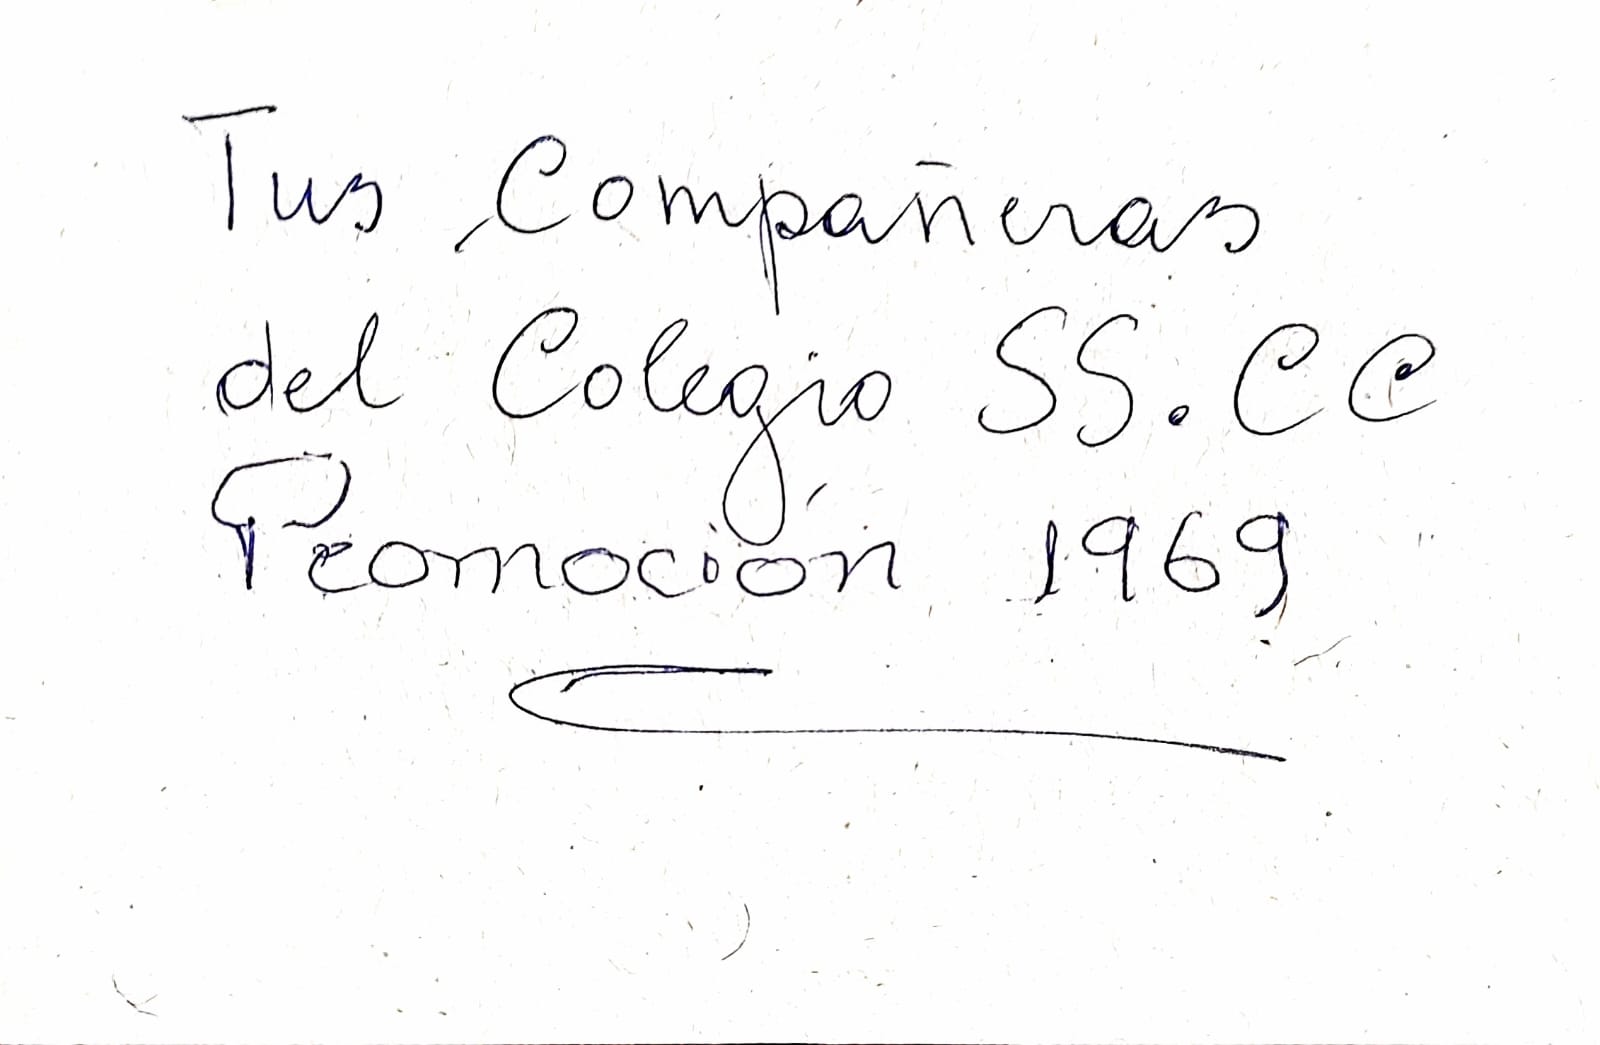 Tus Compañeras
del Colegio SS.CC
Promoción 1969